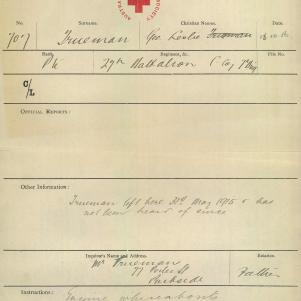 SOCIETY
No. Surname. Christian Names.
7017 Trueman Geo. Leslie Trueman
Rank. Regiment, &c. File No.
Pte 27th Battalion C Coy
C/L
OFFICIAL REPORTS:
Other Information:
Trueman left here 31st May 1915 & has
not been heard of since
Inquirer's Name and Address. Relation.
Mr Trueman
77 Porter St Father
Parkside
Instructions: Enquire whereabouts